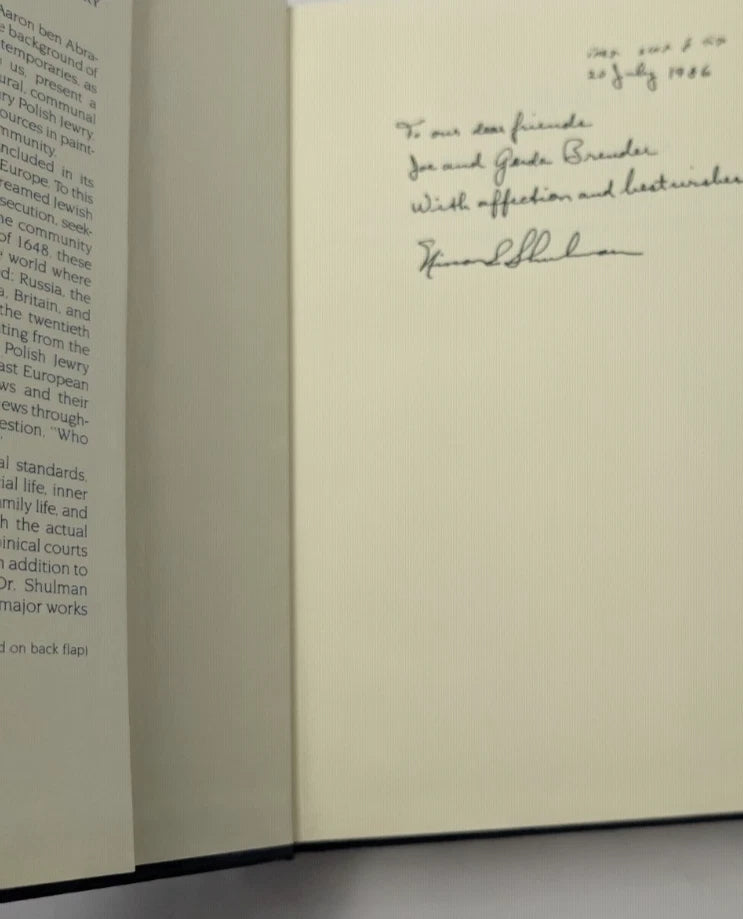 RY
Aaron ben Abra-
e background of
temporaries, as
us, present a
ural, communal
ry Polish Jewry.
ources in paint-
mmunity.
included in its
Europe. To this
reamed Jewish
secution, seek-
he community
of 1648, these
world where
d: Russia, the
a, Britain, and
the twentieth
ting from the
Polish Jewry
ast European
ws and their
ews through-
estion, "Who
al standards,
ial life, inner
mily life, and
h the actual
inical courts
n addition to
Dr. Shulman
major works
d on back flap)
20 July 1986
To our dear friends
Joe and Gerda Brender
With affection and best wishes
Shulman